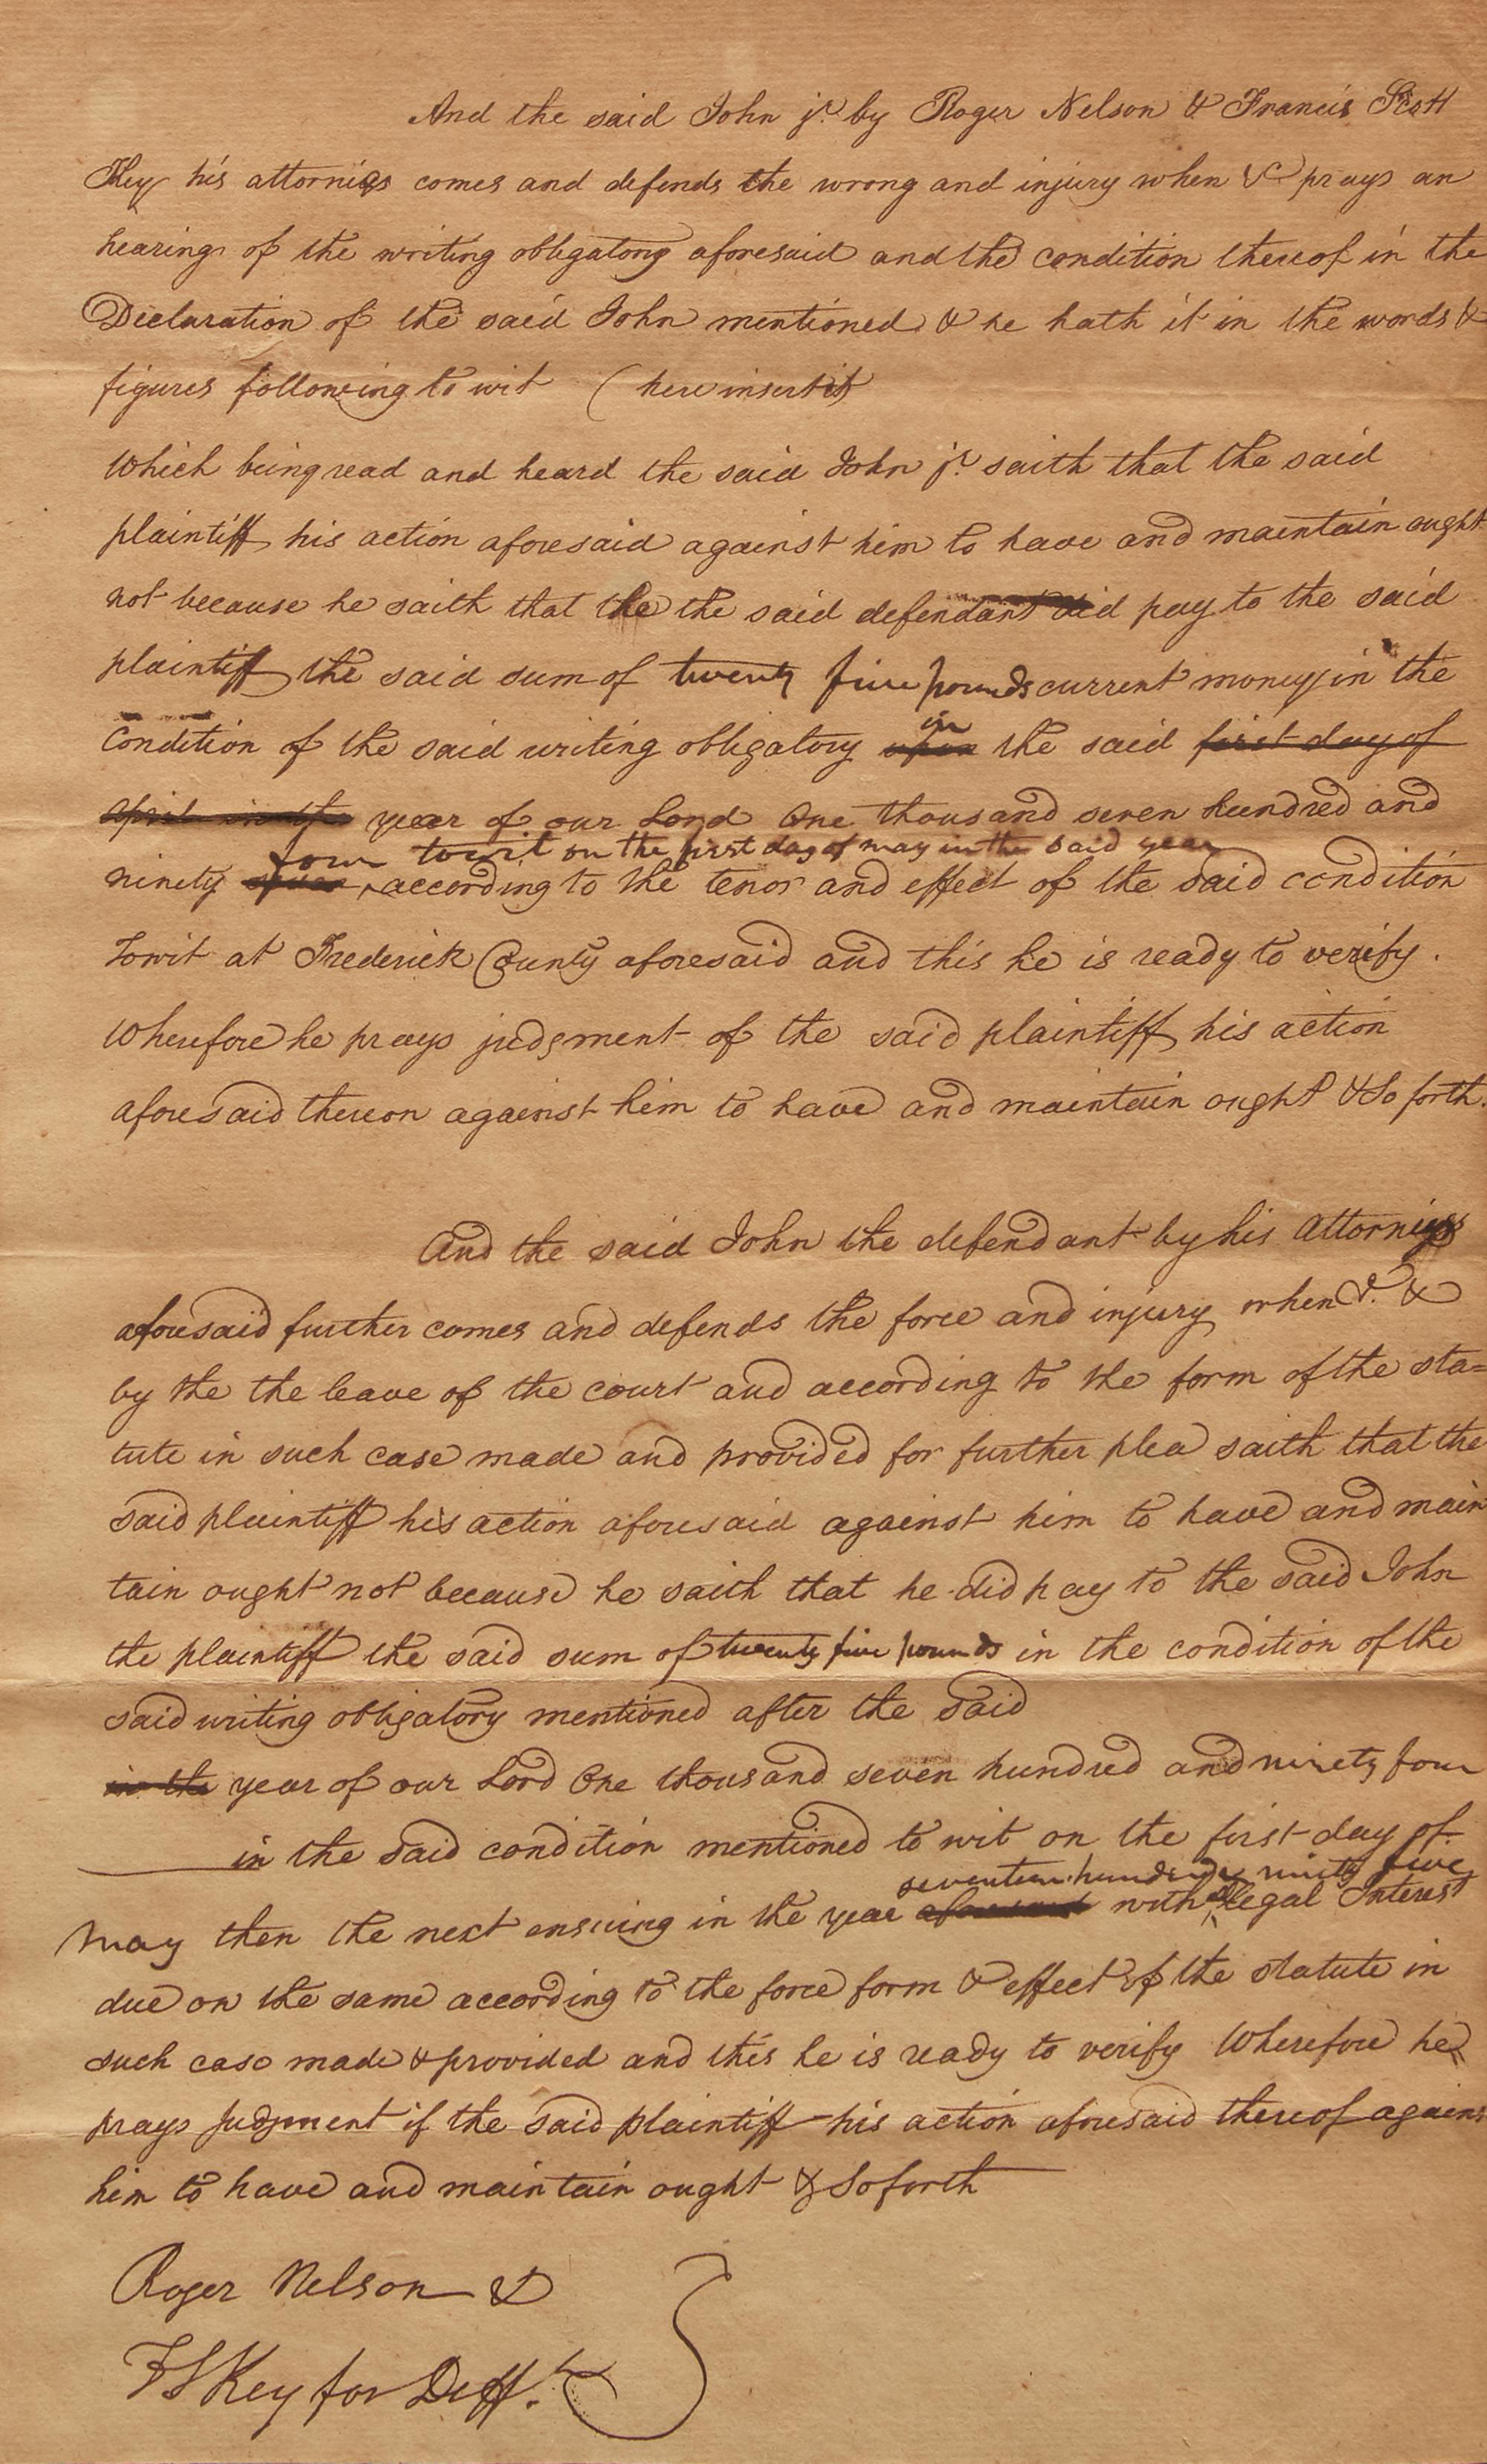 And the said John jr. by Roger Nelson & Francis Scott
Key his attornies comes and defends the wrong and injury when &c prays an
hearing of the writing obligatory aforesaid and the condition thereof in the
Declaration of the said John mentioned & he hath it in the words &
figures following to wit ( here insert it
Which being read and heard the said John jr. saith that the said
plaintiff his action aforesaid against him to have and maintain ought
not because he saith that the the said defendant did pay to the said
plaintiff the said sum of twenty five pounds current money in the
condition of the said writing obligatory upon in the said first day of
april in the year of our Lord One thousand seven hundred and
four towit on the first day of may in the said year
ninety according to the tenor and effect of the said condition
Towit at Frederick County aforesaid and this he is ready to verify.
Wherefore he prays judgment of the said plaintiff his action
aforesaid thereon against him to have and maintain ought & So forth.
And the said John the defendant by his Attornies
aforesaid further comes and defends the force and injury when &. &
by the the leave of the court and according to the form of the sta=
tute in such case made and provided for further plea saith that the
said plaintiff his action aforesaid against him to have and main
tain ought not because he saith that he did pay to the said John
the plaintiff the said sum of twenty five pounds in the condition of the
said writing obligatory mentioned after the said
in the year of our Lord One thousand seven hundred and ninety four
in the said condition mentioned to wit on the first day of
seventeen hundred & ninety five
May then the next ensuing in the year aforesaid with legal Interest
due on the same according to the force form & effect of the statute in
such case made & provided and this he is ready to verify Wherefore he
prays Judgment if the said plaintiff his action aforesaid thereof agains
him to have and maintain ought & So forth
Roger Nelson &
FS Key for Defft.